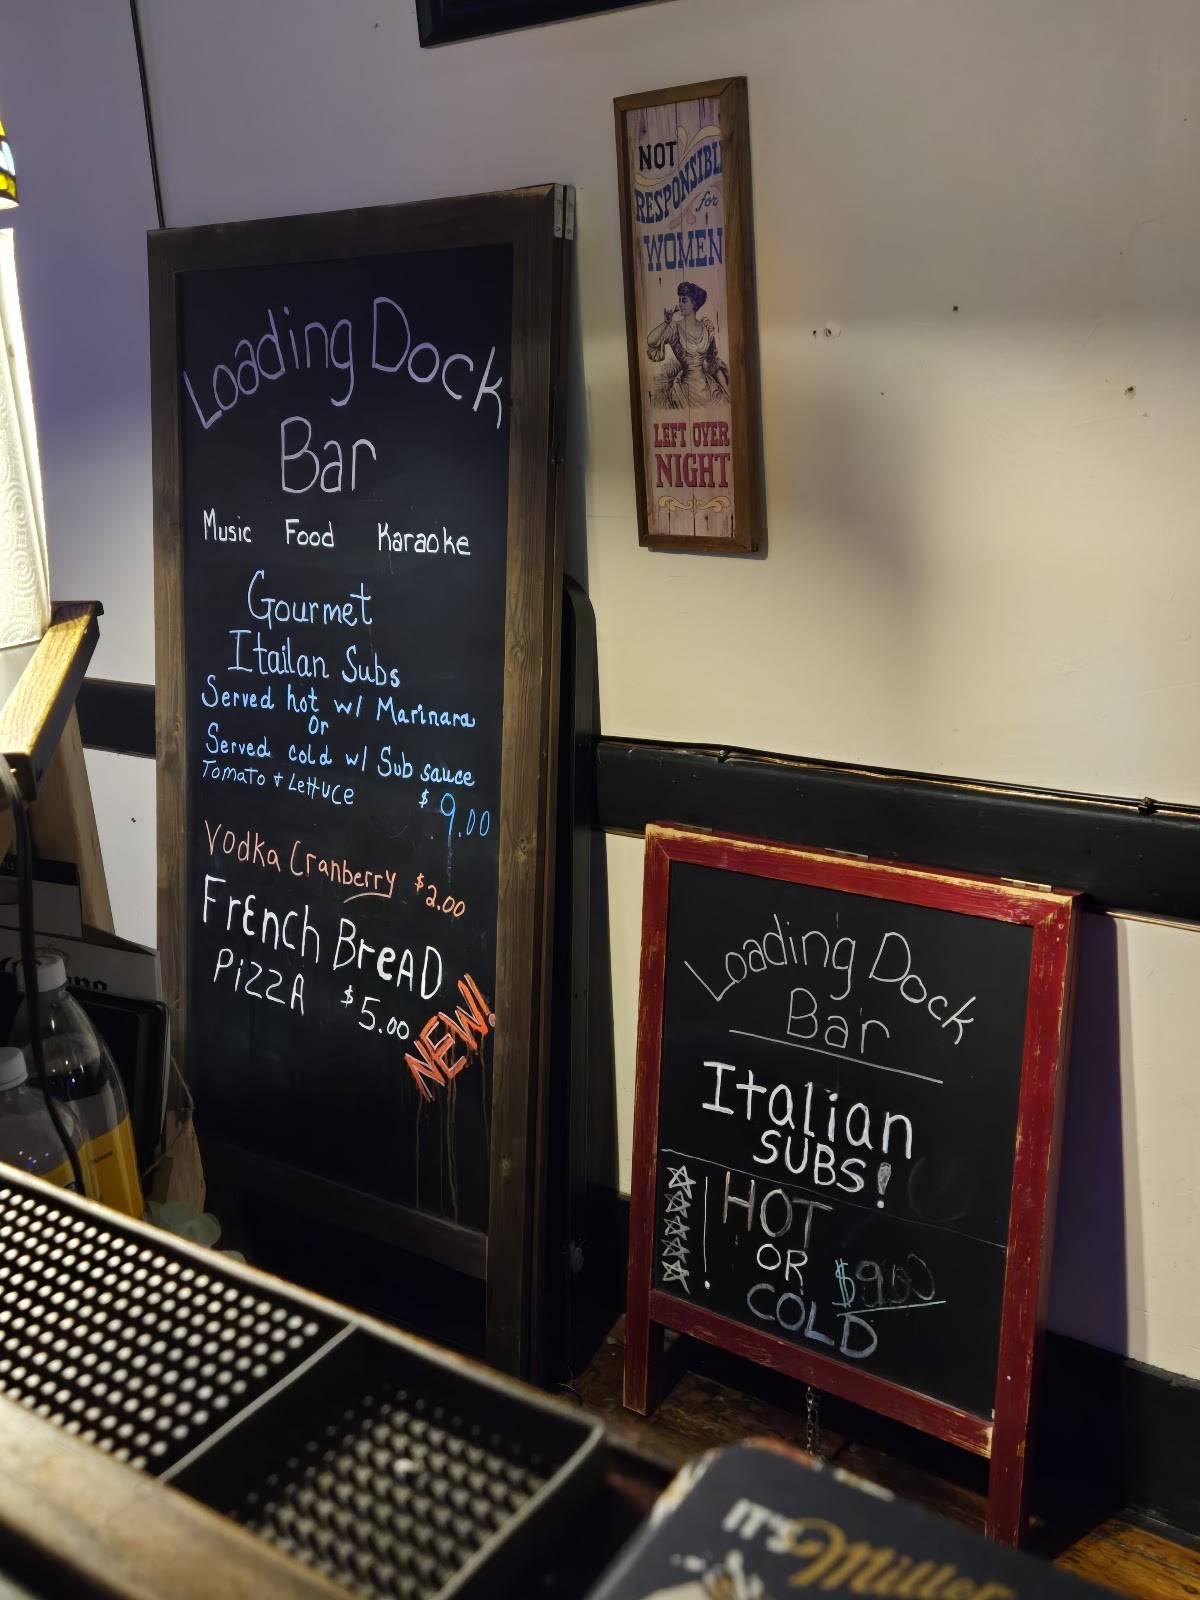 Loading Dock
Bar
Music Food Karaoke
Gourmet
Itailan Subs
Served hot w/ Marinara
Or
Served cold w/ Sub sauce
Tomato + Lettuce
$9.00
Vodka Cranberry $2.00
FrEnch BreAD
PiZZA $5.00
NEW!
NOT
RESPONSIBLE
for
WOMEN
LEFT OVER
NIGHT
Loading Dock
Bar
Italian
SUBS!
HOT
OR
COLD
$9.00
IT'S Miller